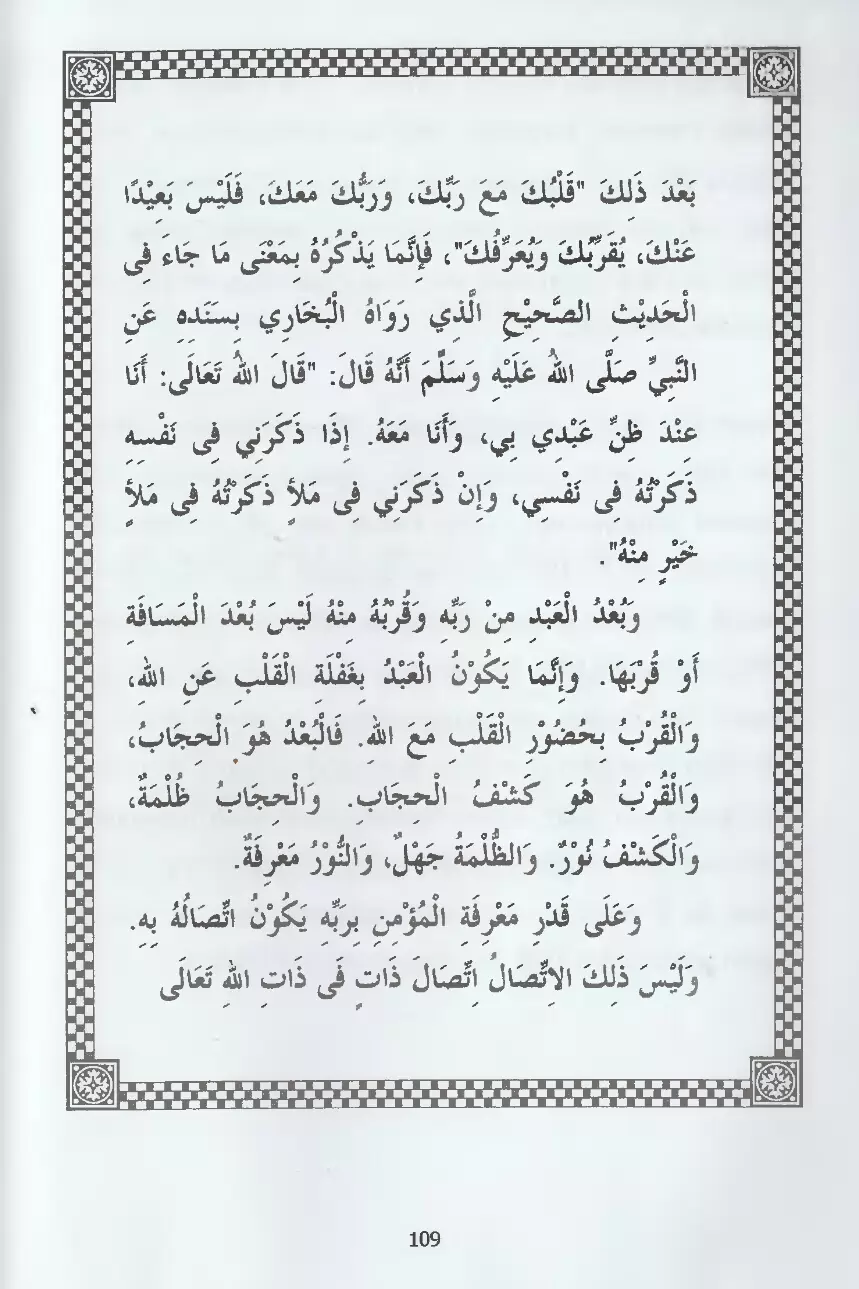 بَعْدَ ذَلِكَ "قَلْبُكَ مَعَ رَبِّكَ، وَرَبُّكَ مَعَكَ، فَلَيْسَ بَعِيْدًا
عَنْكَ، يُقَرِّبُكَ وَيُعَرِّفُكَ"، فَإِنَّمَا يَذْكُرُهُ بِمَعْنَى مَا جَاءَ فِى
الْحَدِيْثِ الصَّحِيْحِ الَّذِي رَوَاهُ الْبُخَارِي بِسَنَدِهِ عَنِ
النَّبِيِّ صَلَّى اللهُ عَلَيْهِ وَسَلَّمَ أَنَّهُ قَالَ: "قَالَ اللهُ تَعَالَى: أَنَا
عِنْدَ ظَنِّ عَبْدِي بِي، وَأَنَا مَعَهُ. إِذَا ذَكَرَنِي فِى نَفْسِهِ
ذَكَرْتُهُ فِى نَفْسِي، وَإِنْ ذَكَرَنِي فِى مَلَأٍ ذَكَرْتُهُ فِى مَلَأٍ
خَيْرٍ مِنْهُ".
وَبُعْدُ الْعَبْدِ مِنْ رَبِّهِ وَقُرْبُهُ مِنْهُ لَيْسَ بُعْدَ الْمَسَافَةِ
أَوْ قُرْبَهَا. وَإِنَّمَا يَكُوْنُ الْبُعْدُ بِغَفْلَةِ الْقَلْبِ عَنِ اللهِ،
وَالْقُرْبُ بِحُضُوْرِ الْقَلْبِ مَعَ اللهِ. فَالْبُعْدُ هُوَ الْحِجَابُ،
وَالْقُرْبُ هُوَ كَشْفُ الْحِجَابِ. وَالْحِجَابُ ظُلْمَةٌ،
وَالْكَشْفُ نُوْرٌ. وَالظُّلْمَةُ جَهْلٌ، وَالنُّوْرُ مَعْرِفَةٌ.
وَعَلَى قَدْرِ مَعْرِفَةِ الْمُؤْمِنِ بِرَبِّهِ يَكُوْنُ اتِّصَالُهُ بِهِ.
وَلَيْسَ ذَلِكَ الِاتِّصَالُ اتِّصَالَ ذَاتٍ فِى ذَاتِ اللهِ تَعَالَى
109